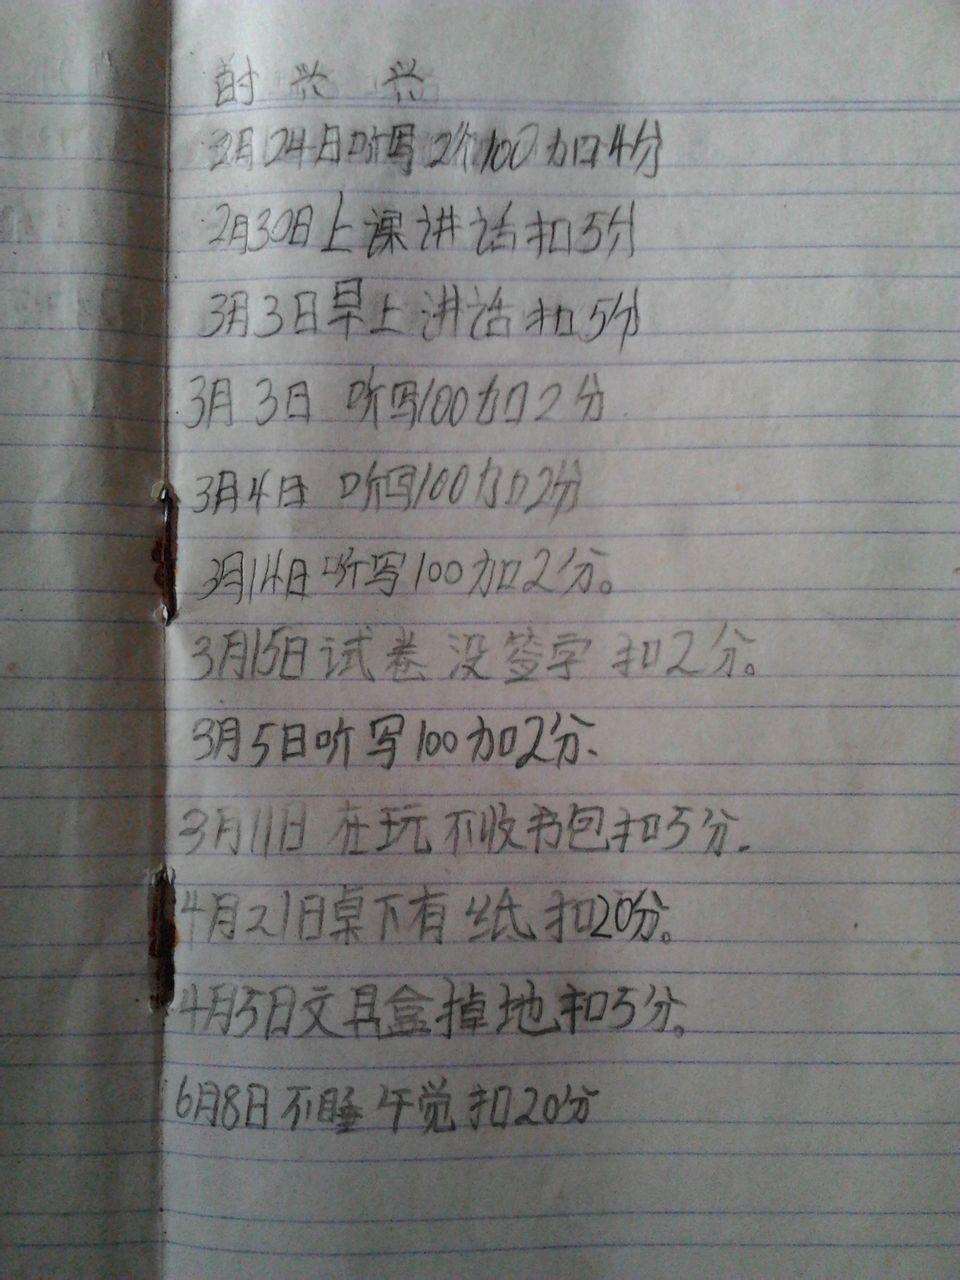 兴 兴
2月24日听写2个100加4分
2月30日上课讲话扣5分
3月3日早上讲话扣5分
3月3日 听写100加2分
3月4日 听写100加2分
3月14日听写100加2分。
3月15日试卷没签字扣2分。
3月5日听写100加2分、
3月11日在玩不收书包扣5分.
4月21日桌下有纸扣20分。
4月5日文具盒掉地扣5分。
6月8日不睡午觉扣20分